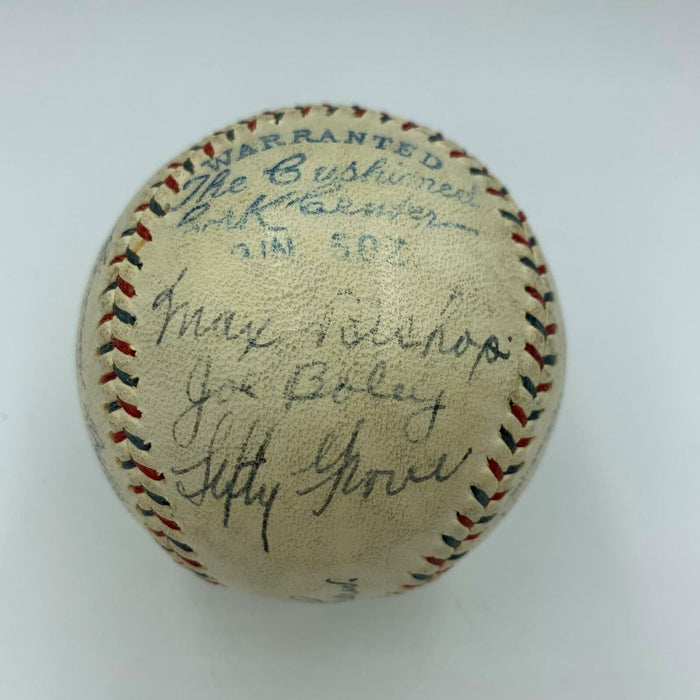 WARRANTED
The Cushioned
Cork Center
5 OZ.
Max Bishop
Joe Boley
Lefty Grove